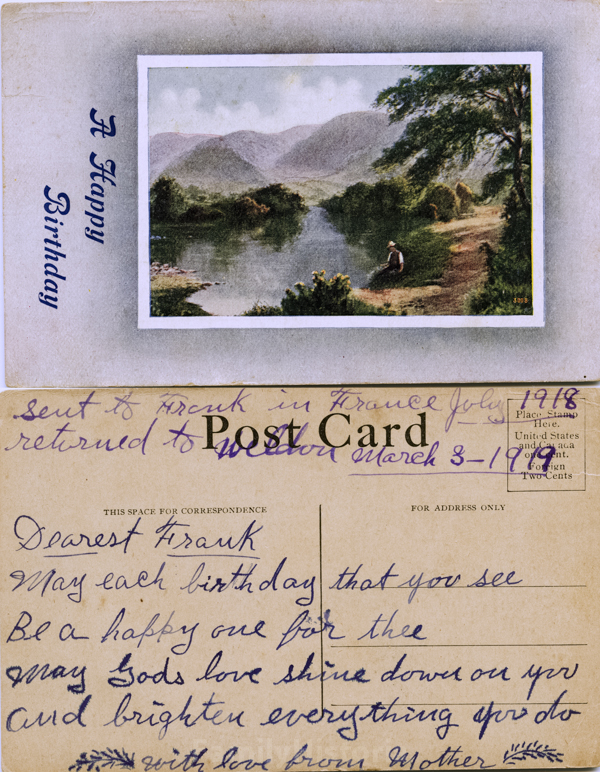 A Happy
Birthday
3253
sent to Frank in France July 1918
returned to Weldon March 3-1919
Post Card
Place Stamp
Here.
United States
and Canada
Foreign
Two Cents
THIS SPACE FOR CORRESPONDENCE
FOR ADDRESS ONLY
Dearest Frank
May each birthday that you see
Be a happy one for thee
May Gods love shine down on you
and brighten everything you do
with love from Mother